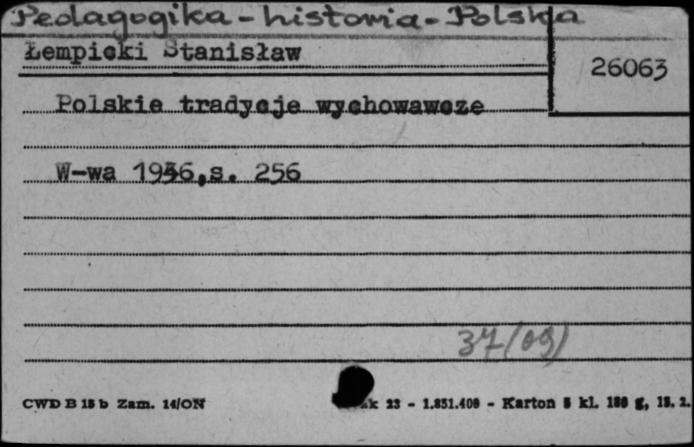 Pedagogika - historia - Polska
Łempicki Stanisław
26063
Polskie tradycje wychowawcze
W-wa 1936, s. 256
37/(09)
CWD B 15 b Zam. 14/ON 23 - 1.851.400 - Karton kl. g,